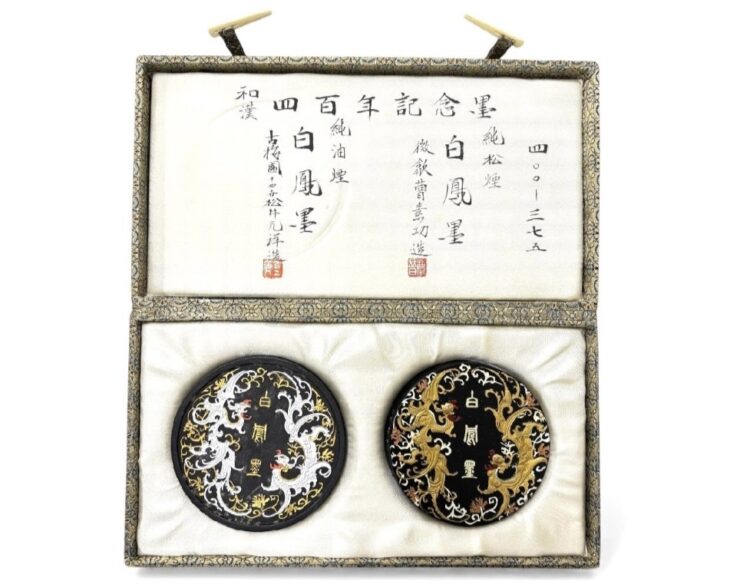 和漢
四百年記念墨
四〇〇-三七五
純松煙
白鳳墨
徽歙曹素功造
純油煙
白鳳墨
古梅園十四世松井元祥造
白鳳墨
白鳳墨